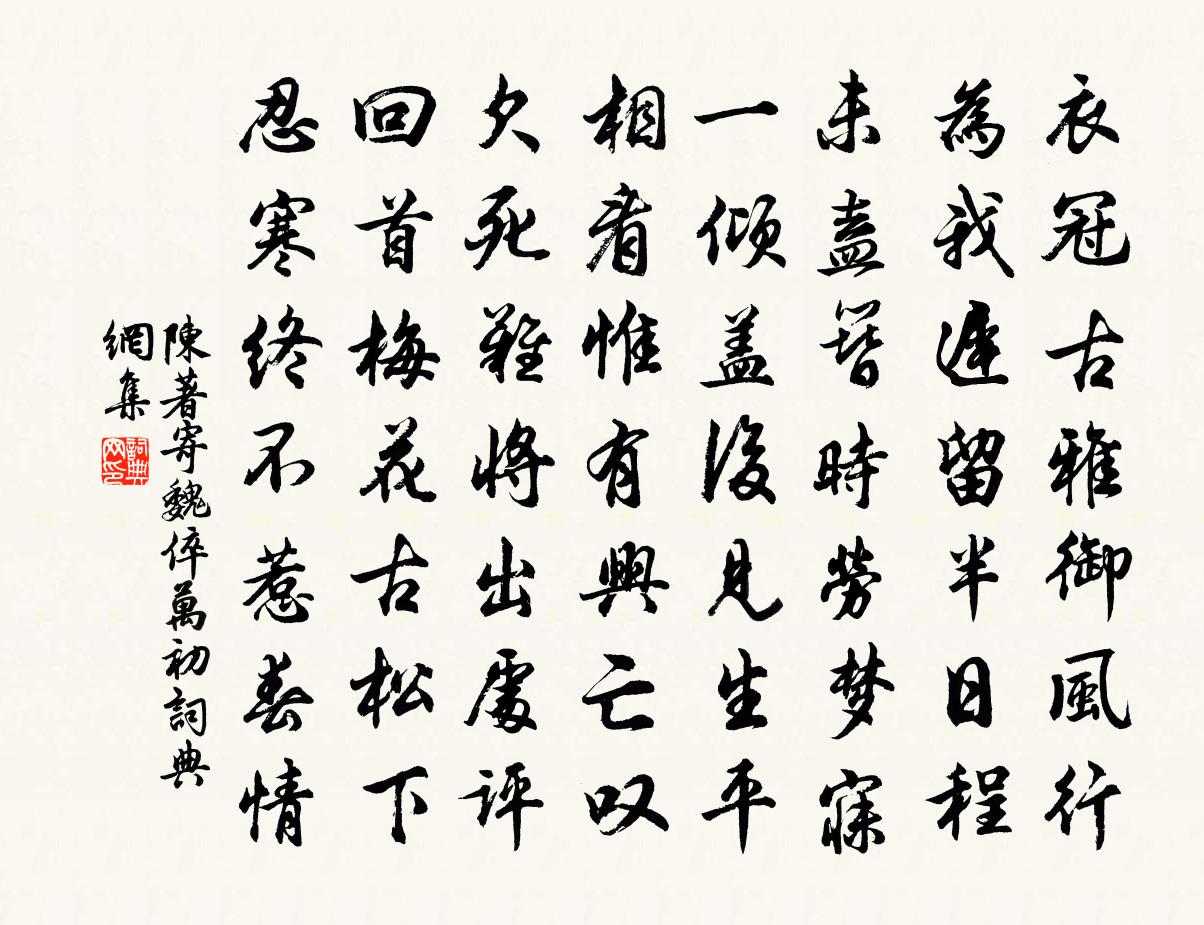 衣冠古雅御風行
為我遲留半日程
未盍簪時勞梦寐
一傾盖後見生平
相看惟有興亡叹
欠死難將出處評
回首梅花古松下
忍寒終不惹春情
陳著寄魏倅萬初詞典
網集
詞典
网印